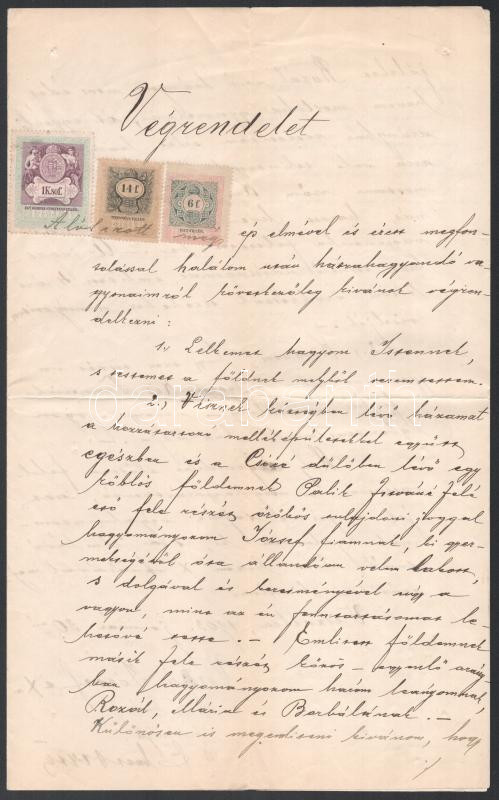 Végrendelet
1K50f.
14 f
6 f
Alulirott még ép elmével és érett megfon-
tolással halálom után hátrahagyandó va-
gyonaimról következőleg kivánok végren-
delkezni:
1., Lelkemet hagyom Istennek,
s testemet a földnek melyből teremtetett.
2., községben lévő házamat
a hozzátartozó melléképületekkel együtt
egészben és a dülőben lévő egy
köblös földemnek Palik felé
eső fele részét örökös tulajdoni joggal
hagyományozom József fiamnak, ki gyer-
mekségétől óta állandóan velem lakott,
s dolgával és keresményével úgy a
vagyon, mint az én fenntartásomat le-
hetővé tette. — Emlitett földemnek
másik fele részét közös - egyenlő arány-
ban hagyományozom három leányomnak,
Rozál, Mária és Borbálának. —
Különösen is megemliteni kivánom, hogy
./.
darabanth